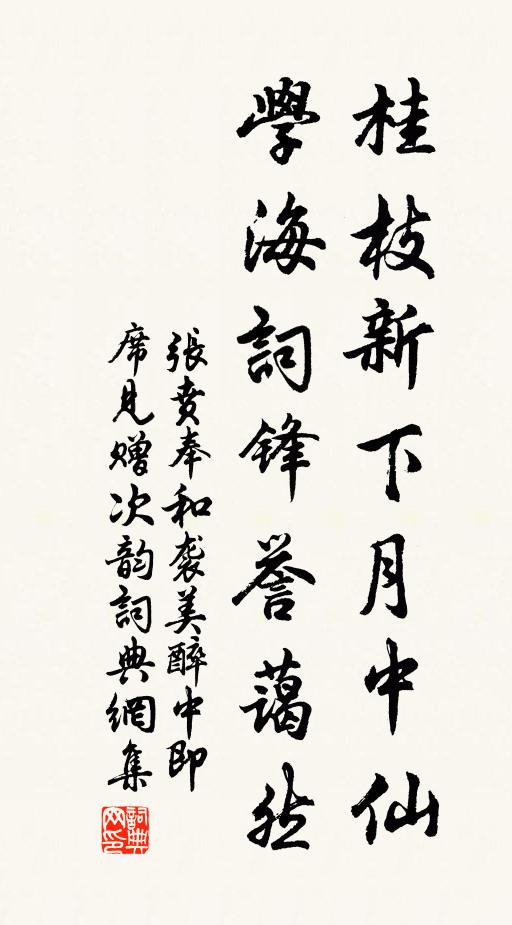 桂枝新下月中仙
學海詞锋誉藹然
張賁奉和袭美醉中即
席見赠次韵詞典網集
詞典
网印